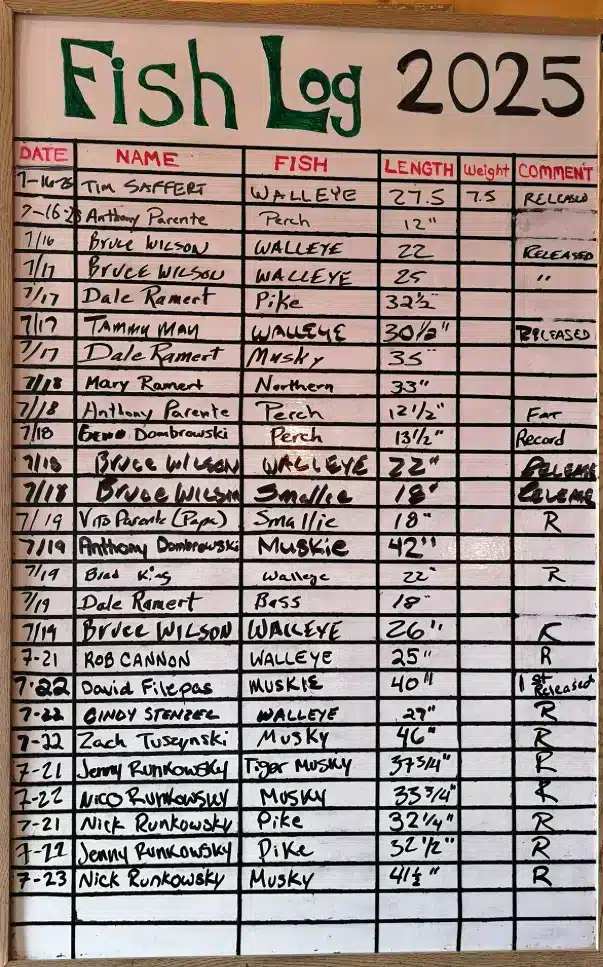 Fish Log 2025
DATE NAME FISH LENGTH Weight COMMENT
7-16-25 TIM SAFFERT WALLEYE 27.5 7.5 RELEASED
7-16-25 Anthony Parente Perch 12"
7/16 BRUCE WILSON WALLEYE 22 RELEASED
7/17 BRUCE WILSON WALLEYE 25 "
7/17 Dale Ramert Pike 32½"
7/17 TAMMY MAY WALLEYE 30½" RELEASED
7/17 Dale Ramert Musky 35"
7/18 Mary Ramert Northern 33"
7/18 Anthony Parente Perch 12 1/2" FAT
7/18 Dombrowski Perch 13½" Record
7/18 BRUCE WILSON WALLEYE 22" RELEASE
7/18 BRUCE WILSON Smallie 18" RELEASE
7/19 Vito Parente (Papa) Smallie 18" R
7/19 Anthony Dombrowski Muskie 42"
7/19 Brad King Walleye 22" R
7/19 Dale Ramert Bass 18"
7/19 BRUCE WILSON WALLEYE 26" R
7-21 ROB CANNON WALLEYE 25" R
7-22 David Filepas MUSKIE 40" 1st Released
7-22 CINDY STENZEL WALLEYE 27" R
7-22 Zach Tuszynski Musky 46" R
7-21 Jenny Runkowsky Tiger Musky 37 3/4" R
7-22 NICO RUNKOWSKY MUSKY 33 3/4" R
7-21 Nick Runkowsky Pike 32 1/4" R
7-22 Jenny Runkowsky Pike 32 1/2" R
7-23 Nick Runkowsky Musky 41½" R